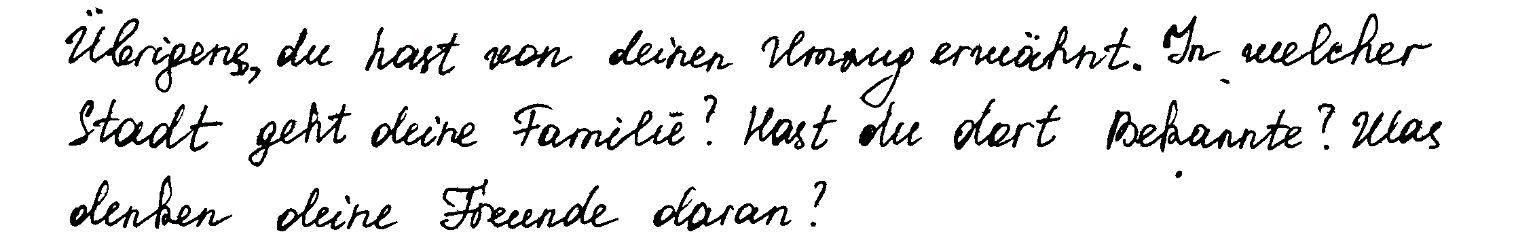 Übrigens, du hast von deinen Umzug erwähnt. In welcher
Stadt geht deine Familie? Hast du dort Bekannte? Was
denken deine Freunde daran?